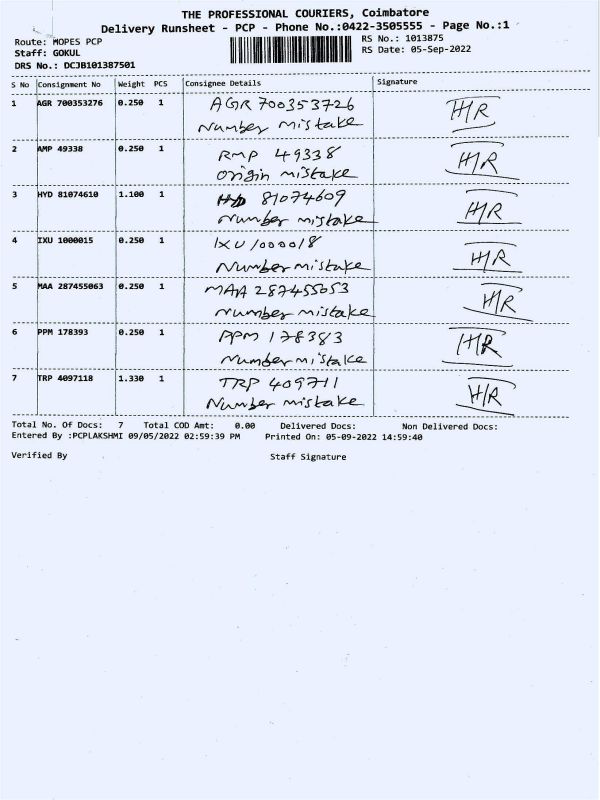 THE PROFESSIONAL COURIERS, Coimbatore
Delivery Runsheet - PCP - Phone No.:0422-3505555 - Page No.:1
Route: MOPES PCP
RS No.: 1013875
Staff: GOKUL
RS Date: 05-Sep-2022
DRS No.: DCJB101387501
S No Consignment No Weight PCS Consignee Details Signature
1 AGR 700353276 0.250 1 AGR 700353726 H/R
Number mistake
2 AMP 49338 0.250 1 RMP 49338 H/R
Origin mistake
3 HYD 81074610 1.100 1 HYD 81074609 H/R
Number mistake
4 IXU 1000015 0.250 1 IXU 1000018 H/R
Number mistake
5 MAA 287455063 0.250 1 MAA 287455053 H/R
Number mistake
6 PPM 178393 0.250 1 PPM 178383 H/R
Number mistake
7 TRP 4097118 1.330 1 TRP 409711 H/R
Number mistake
Total No. Of Docs: 7 Total COD Amt: 0.00 Delivered Docs: Non Delivered Docs:
Entered By :PCPLAKSHMI 09/05/2022 02:59:39 PM Printed On: 05-09-2022 14:59:40
Verified By Staff Signature